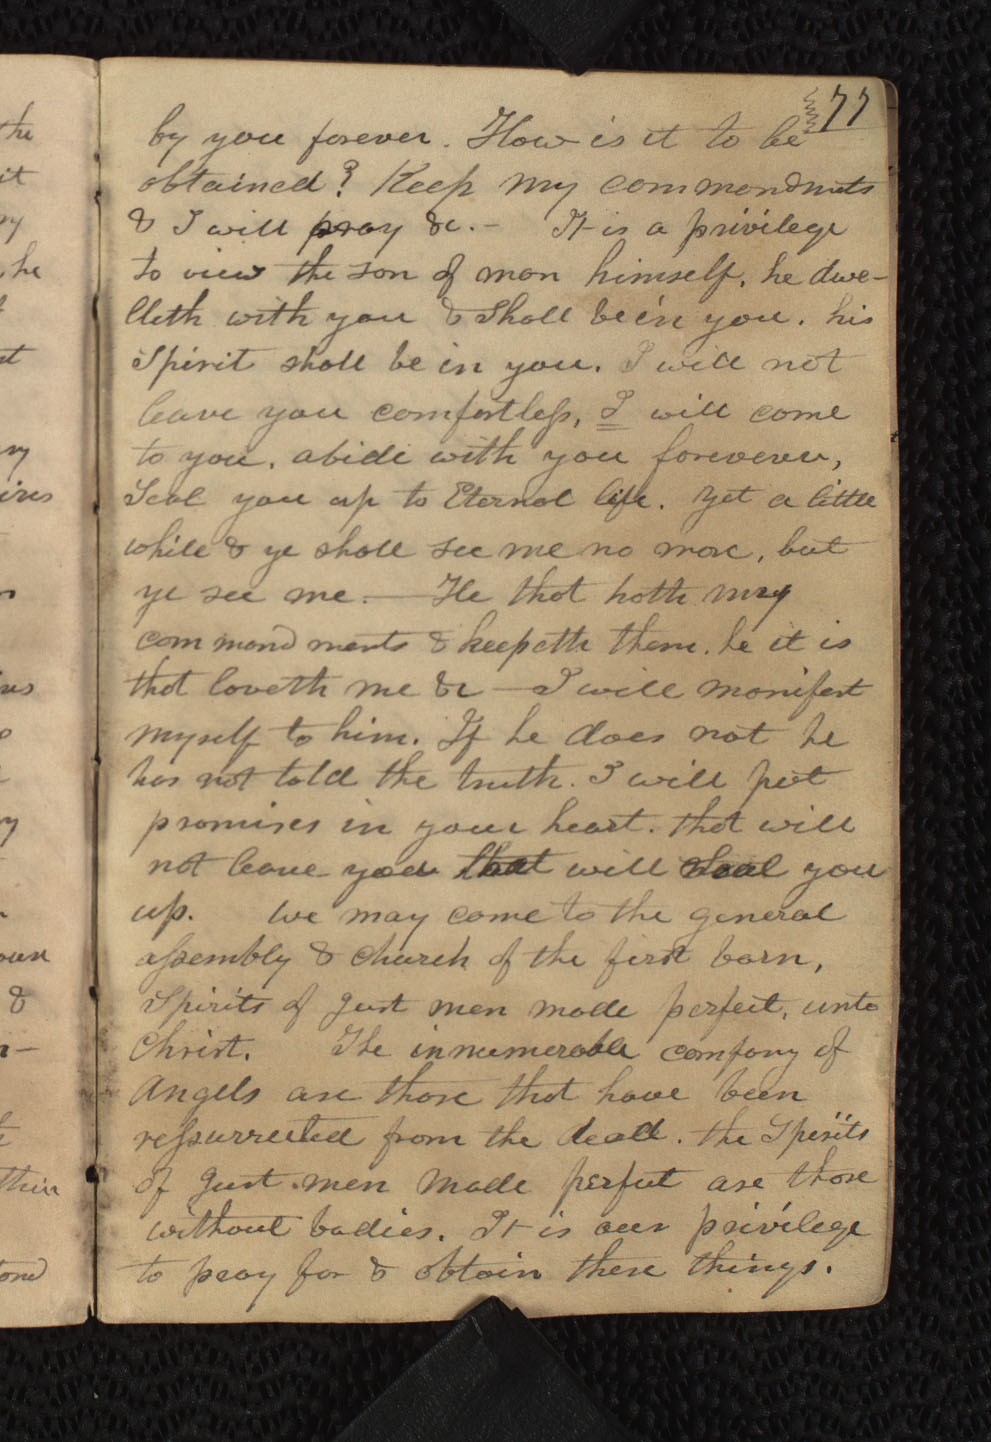 77
by you forever. How is it to be
obtained? Keep my commandmnts
& I will pray &c. - It is a privilege
to view the son of man himself. he dwe-
lleth with you & shall be in you. his
Spirit shall be in you. I will not
leave you comfortless, I will come
to you. abide with you foreverer,
Seal you up to Eternal life. Yet a little
while & ye shall see me no more, but
ye see me. — He that hath my
commandments & keepeth them. he it is
that loveth me &c — I will manifest
myself to him. If he does not he
has not told the truth. I will put
promises in your heart. that will
not leave you that will seal you
up. We may come to the general
assembly & church of the first born,
Spirits of Just men made perfect, unto
Christ. The innumerable company of
Angels are those that have been
ressurrected from the dead. the Spirits
of Just men made perfect are those
without bodies. It is our privilege
to pray for & obtain these things.
the
it
he
ires
&